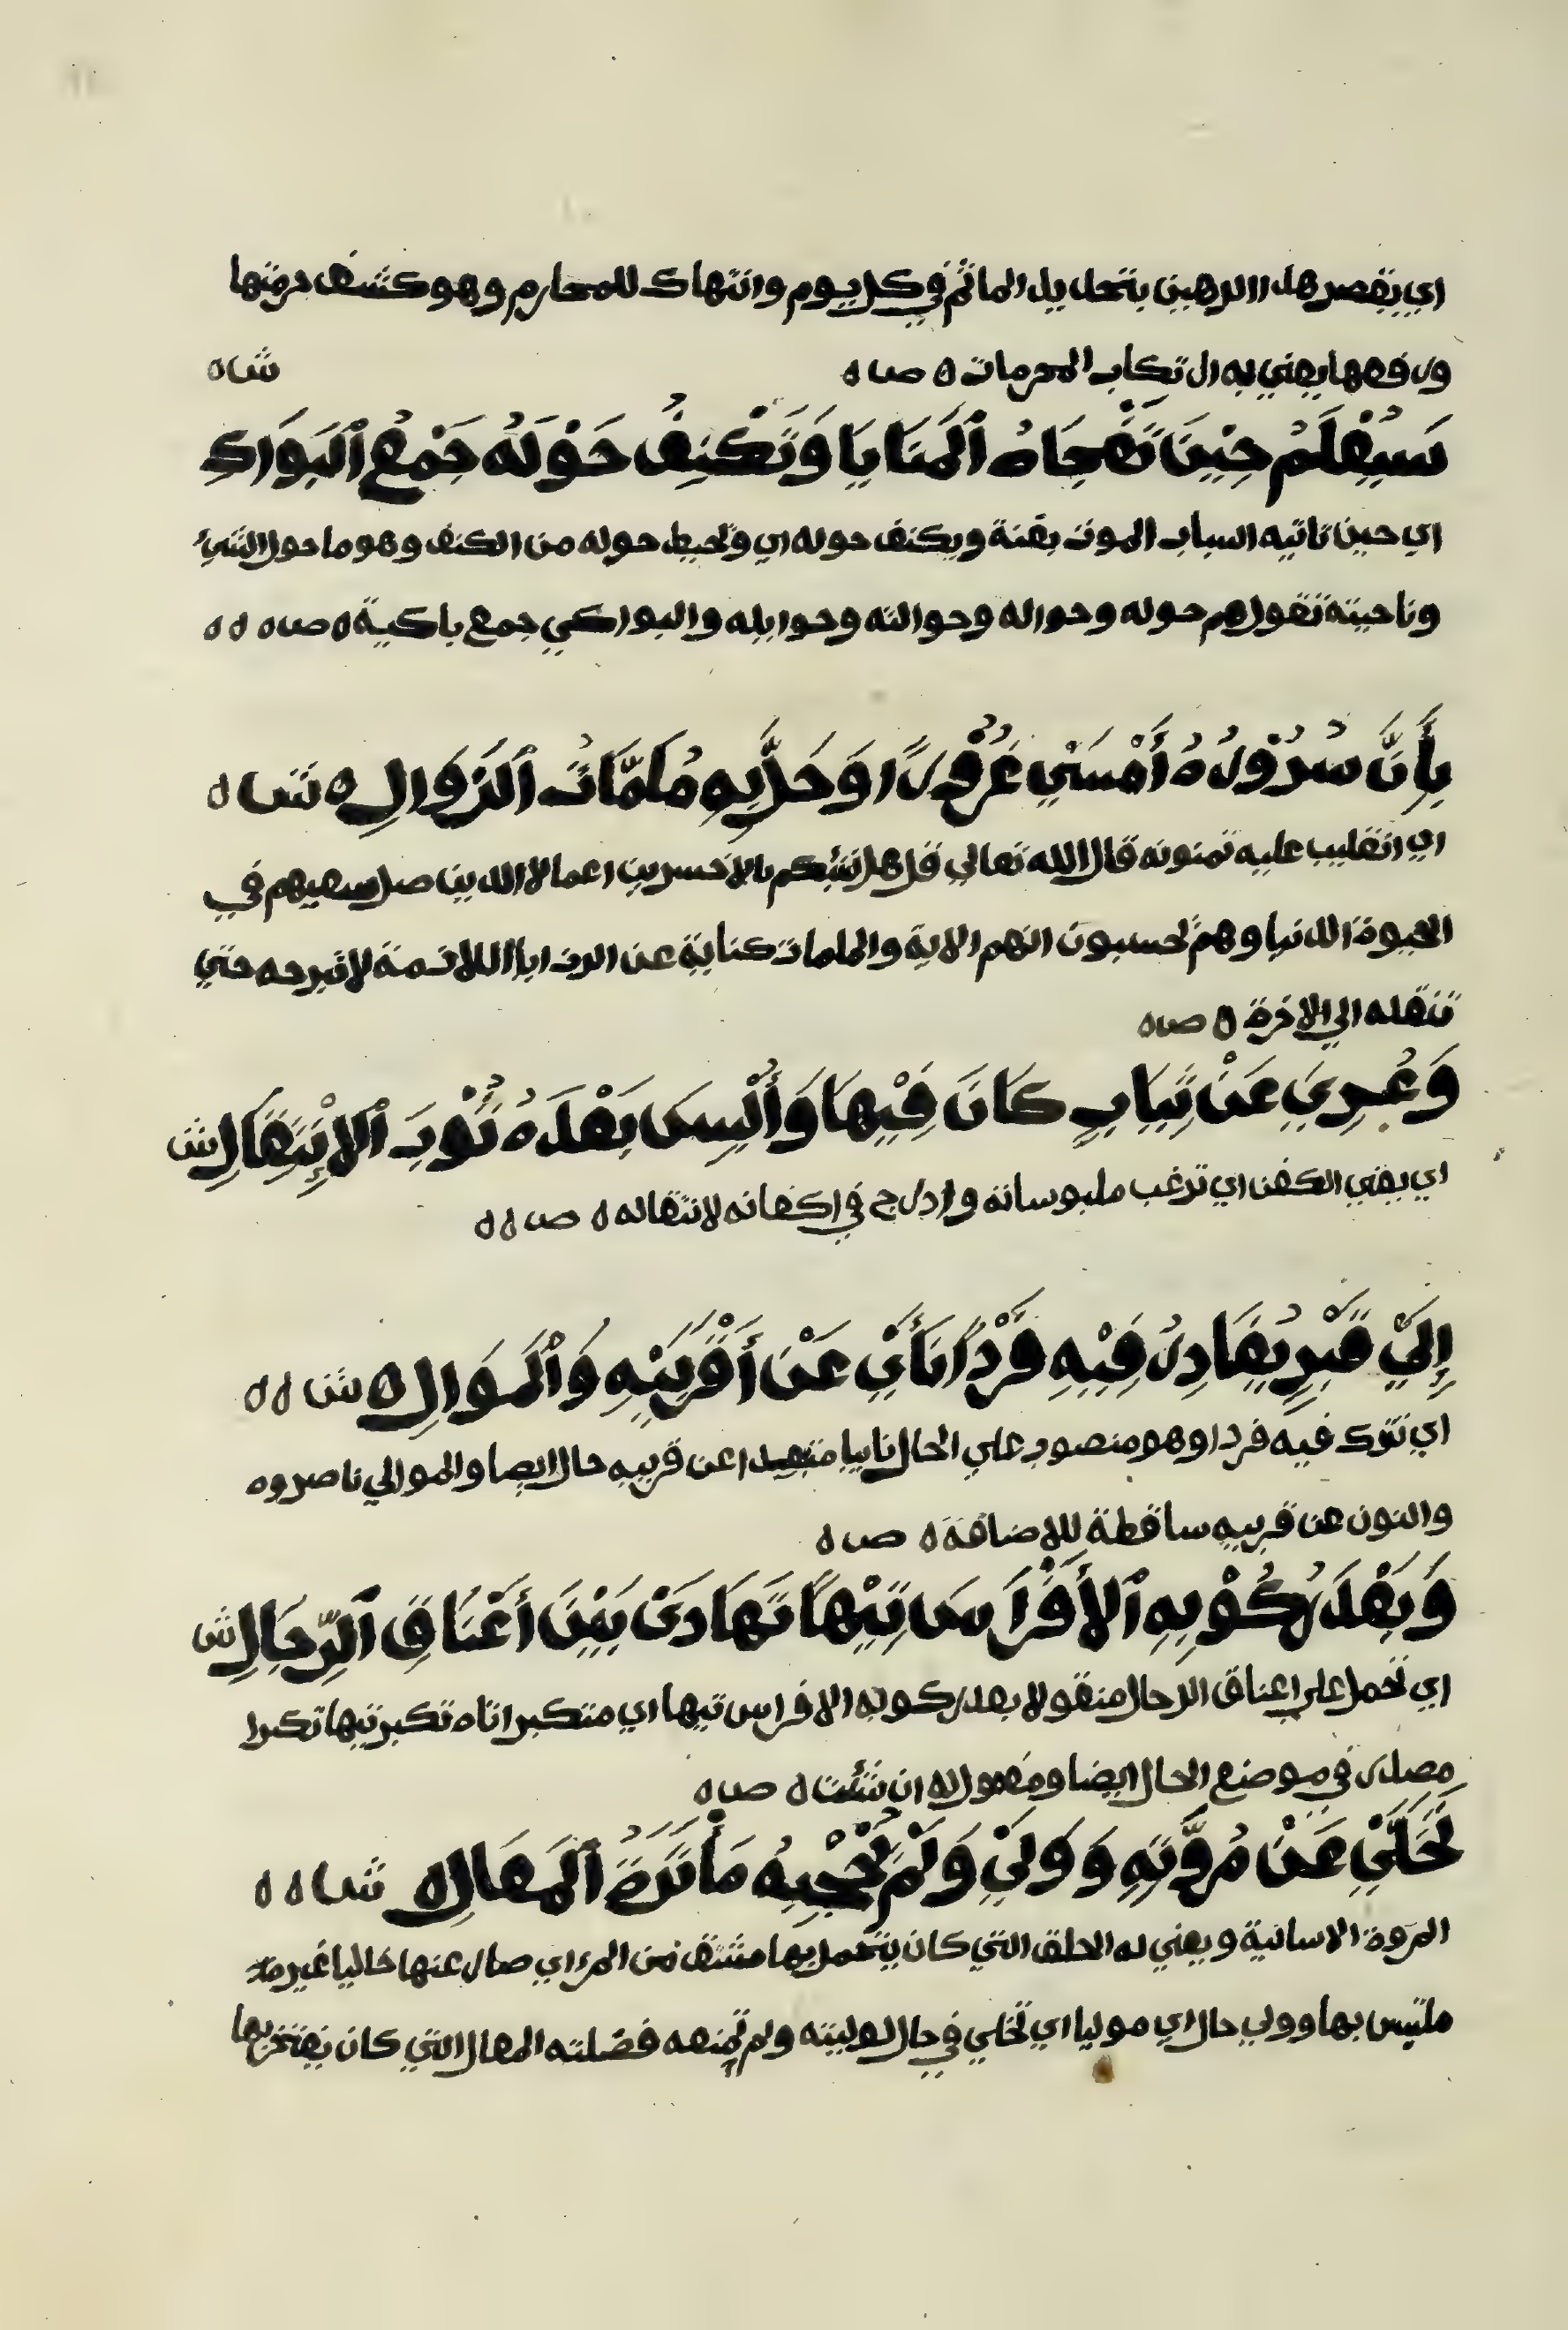 اي يقصر هذا الرهين بتحليل الماثم في كل يوم وانتهاك للمحارم وهو كشف حرمتها
ورفعها يعني به ارتكاب المحرمات ه صا ه
شا ه
سَيَعْلَمُ حِيْنَ تَفْجَاهُ ٱلْمَنَايَا وَتَكْنِفُ حَوْلَهُ جَمْعُ ٱلْبَوَاكِ
اي حين تاتيه اسباب الموت بغتة ويكنف حوله اي وتحيط حوله من الكنف وهو ما حول الشيء
وناحيته تقول هم حوله وحواله وحوالته وحوايله والبواكي جمع باكية ه صا ه ه ه
بِأَنَّ سُرُوْرَهُ أَمْسَىٰ غُرُوْرًا وَحَلَّ بِهِ مُلِمَّاتُ ٱلزَّوَالِ ه شا ه
اي انقليب عليه تمنونه قال الله تعالي قل هل ننبئكم بالاخسرين اعمالا الذين ضل سعيهم في
الحيوة الدنيا وهم يحسبون انهم الاية والملمات كناية عن الرزايا اللازمة لا تبرحه حتي
تنقله الي الاخرة ه صا ه
وَعُرِيَ عَنْ ثِيَابٍ كَانَ فِيْهَا وَأُلْبِسَ بَعْدَهُ ثَوْبَ ٱلْإِنْتِقَالِ شا
اي يعني الكفن اي ترغب ملبوساته وادرج في اكفانه لانتقاله ه صا ه ه
إِلَىٰ قَبْرٍ يُغَادِرُ فِيْهِ فَرْدًا نَأَىٰ عَنْ أَقْرَبِيْهِ وَٱلْمَوَالِ ه شا ه ه
اي نترك فيه فردا وهو منصوب علي الحال نايبا متبعدا عن قريبه حال ايضا والموالي ناصروه
والنون عن قريبه ساقطة للاضافة ه صا ه
وَبَعْدَ رُكُوْبِهِ ٱلْأَفْرَاسَ تِيْهًا تَهَادَىٰ بَيْنَ أَعْنَاقِ ٱلرِّجَالِ شا
اي تحمل علي اعناق الرجال منقولا بعد ركوبه الافراس تيها اي متكبرا تاه تكبر تيها تكبرا
مصدر في موضع الحال ايضا ومفعول له ان شئت ه صا ه
تَخَلَّىٰ عَنْ مُرُوَّتِهِ وَوَلَّىٰ وَلَمْ تَحْجُبْهُ مَأْثَرَةُ ٱلْمَعَالِ ه شا ه ه
المروة الانسانية ويعني له الخلق التي كان يتعمل بها مشتق من المرء اي صار عنها خاليا غير
ملتبس بها وولي حال اي موليا اي تخلي في حال لوليته ولم تمنعه فضلته المعال التي كان يفتخر بها